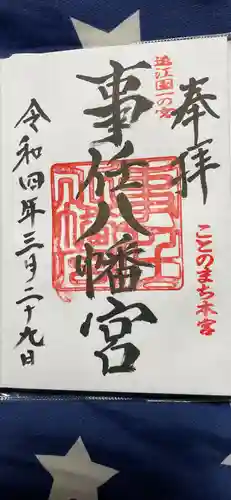 奉拝
ことのまち本宮
遠江國一の宮
事任八幡宮
令和四年三月二十九日